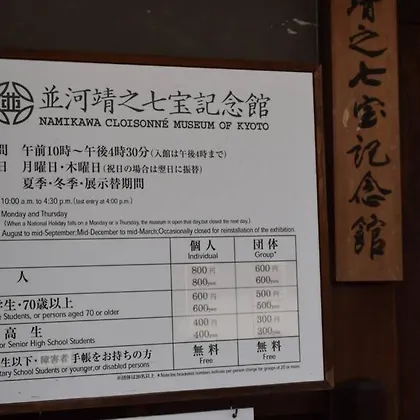 並
並河靖之七宝記念館
NAMIKAWA CLOISONNÉ MUSEUM OF KYOTO
間 午前10時〜午後4時30分(入館は午後4時まで)
日 月曜日・木曜日(祝日の場合は翌日に振替)
夏季・冬季・展示替期間
10:00 a.m. to 4:30 p.m. (last entry at 4:00 p.m.)
Monday and Thursday
(When a National Holiday falls on a Monday or a Thursday, the museum is open that day, but closed the next day.)
August to mid-September; Mid-December to mid-March; Occasionally closed for reinstallation of the exhibition.
個人 団体
Individual Group*
人 800円 600円
800yen 600yen
学生・70歳以上 600円 500円
Students, or persons aged 70 or older 600yen 500yen
高生 400円 300円
or Senior High School Students 400yen 300yen
生以下・障害者手帳をお持ちの方 無料 無料
tary School Students or younger, or disabled persons Free Free
※団体は20名以上 * Asterisk bracketed numbers indicate per person charge for groups of 20 or more.
靖之七宝記念館